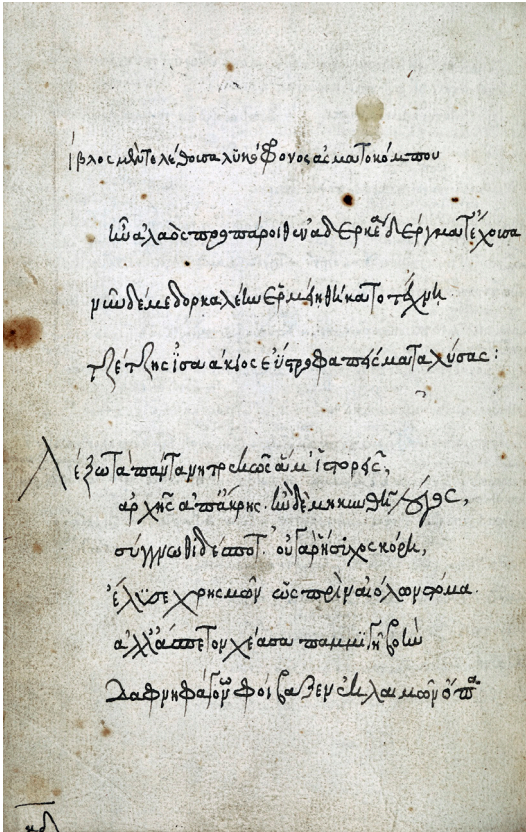 ίβλος μὲν τελέθουσα λυκόφρονος ἀσματοκόμπου
ἣν ἀλαὸς προπάροιθεν ἀδερκέα δέργματ' ἔχουσα
νῦν δέ με δορκαλέην ἑρμείη θήκατο τέχνη
τζέτζης ἰσαάκιος εὔστροφα πείσματα λύσας:
Λέξω τὰ πάντα νητρεκῶς ἅ μ' ἱστορεῖς,
ἀρχῆς ἀπ' ἄκρης. ἢν δὲ μηκυνθῆ λόγος,
σύγγνωθι δέσποτ'. οὐ γὰρ ἥσυχος κόρη,
ἔλυσε χρησμῶν ὡς πρὶν αἰόλον στόμα.
ἀλλ' ἄσπετον χέασα παμμιγῆ βοὴν
Δαφνηφάγων φοίβαζεν ἐκ λαιμῶν ὄπα